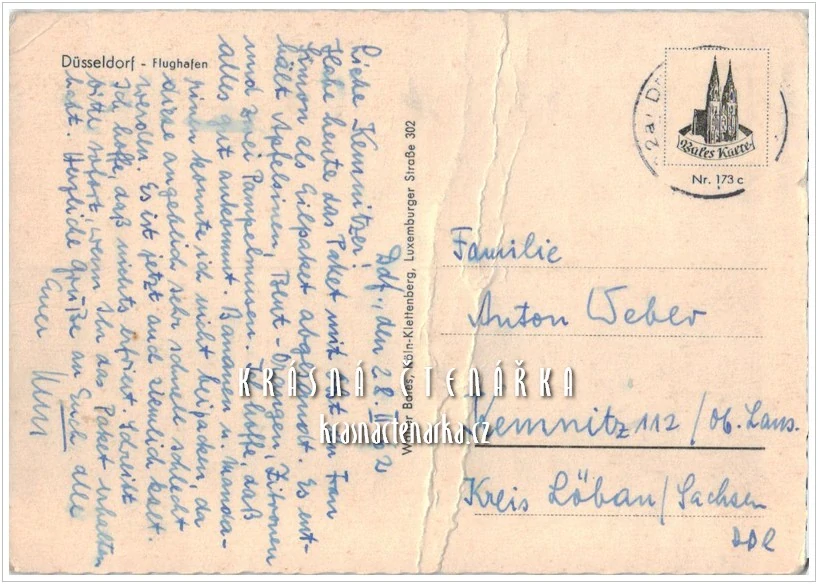 Düsseldorf - Flughafen
Ddf., den 28. II.
Liebe Kemnitzer!
Habe heute das Paket mit Frau
Simon als Eilpaket abgesandt. Es ent-
hält Apfelsinen, Blut-Zitronen
und zwei Pampelmusen. Ich hoffe, daß
alles gut ankommt. Bananen u. Manda-
rinen konnte ich nicht beipacken, da
diese angeblich sehr schnell schlecht
werden. Es ist jetzt auch ziemlich kalt.
Ich hoffe, daß nichts erfriert. Schreibt
bitte sofort, wenn Ihr das Paket erhalten
habt. Herzliche Grüße an Euch alle
Euer
Werner Bares, Köln-Klettenberg, Luxemburger Straße 302
(22a) D
Bares Karte
Nr. 173 c
Familie
Anton Weber
Kemnitz 112 / Ob. Laus.
Kreis Löbau / Sachsen
DDR
KRÁSNÁ ČTENÁŘKA
krasnactenarka.cz